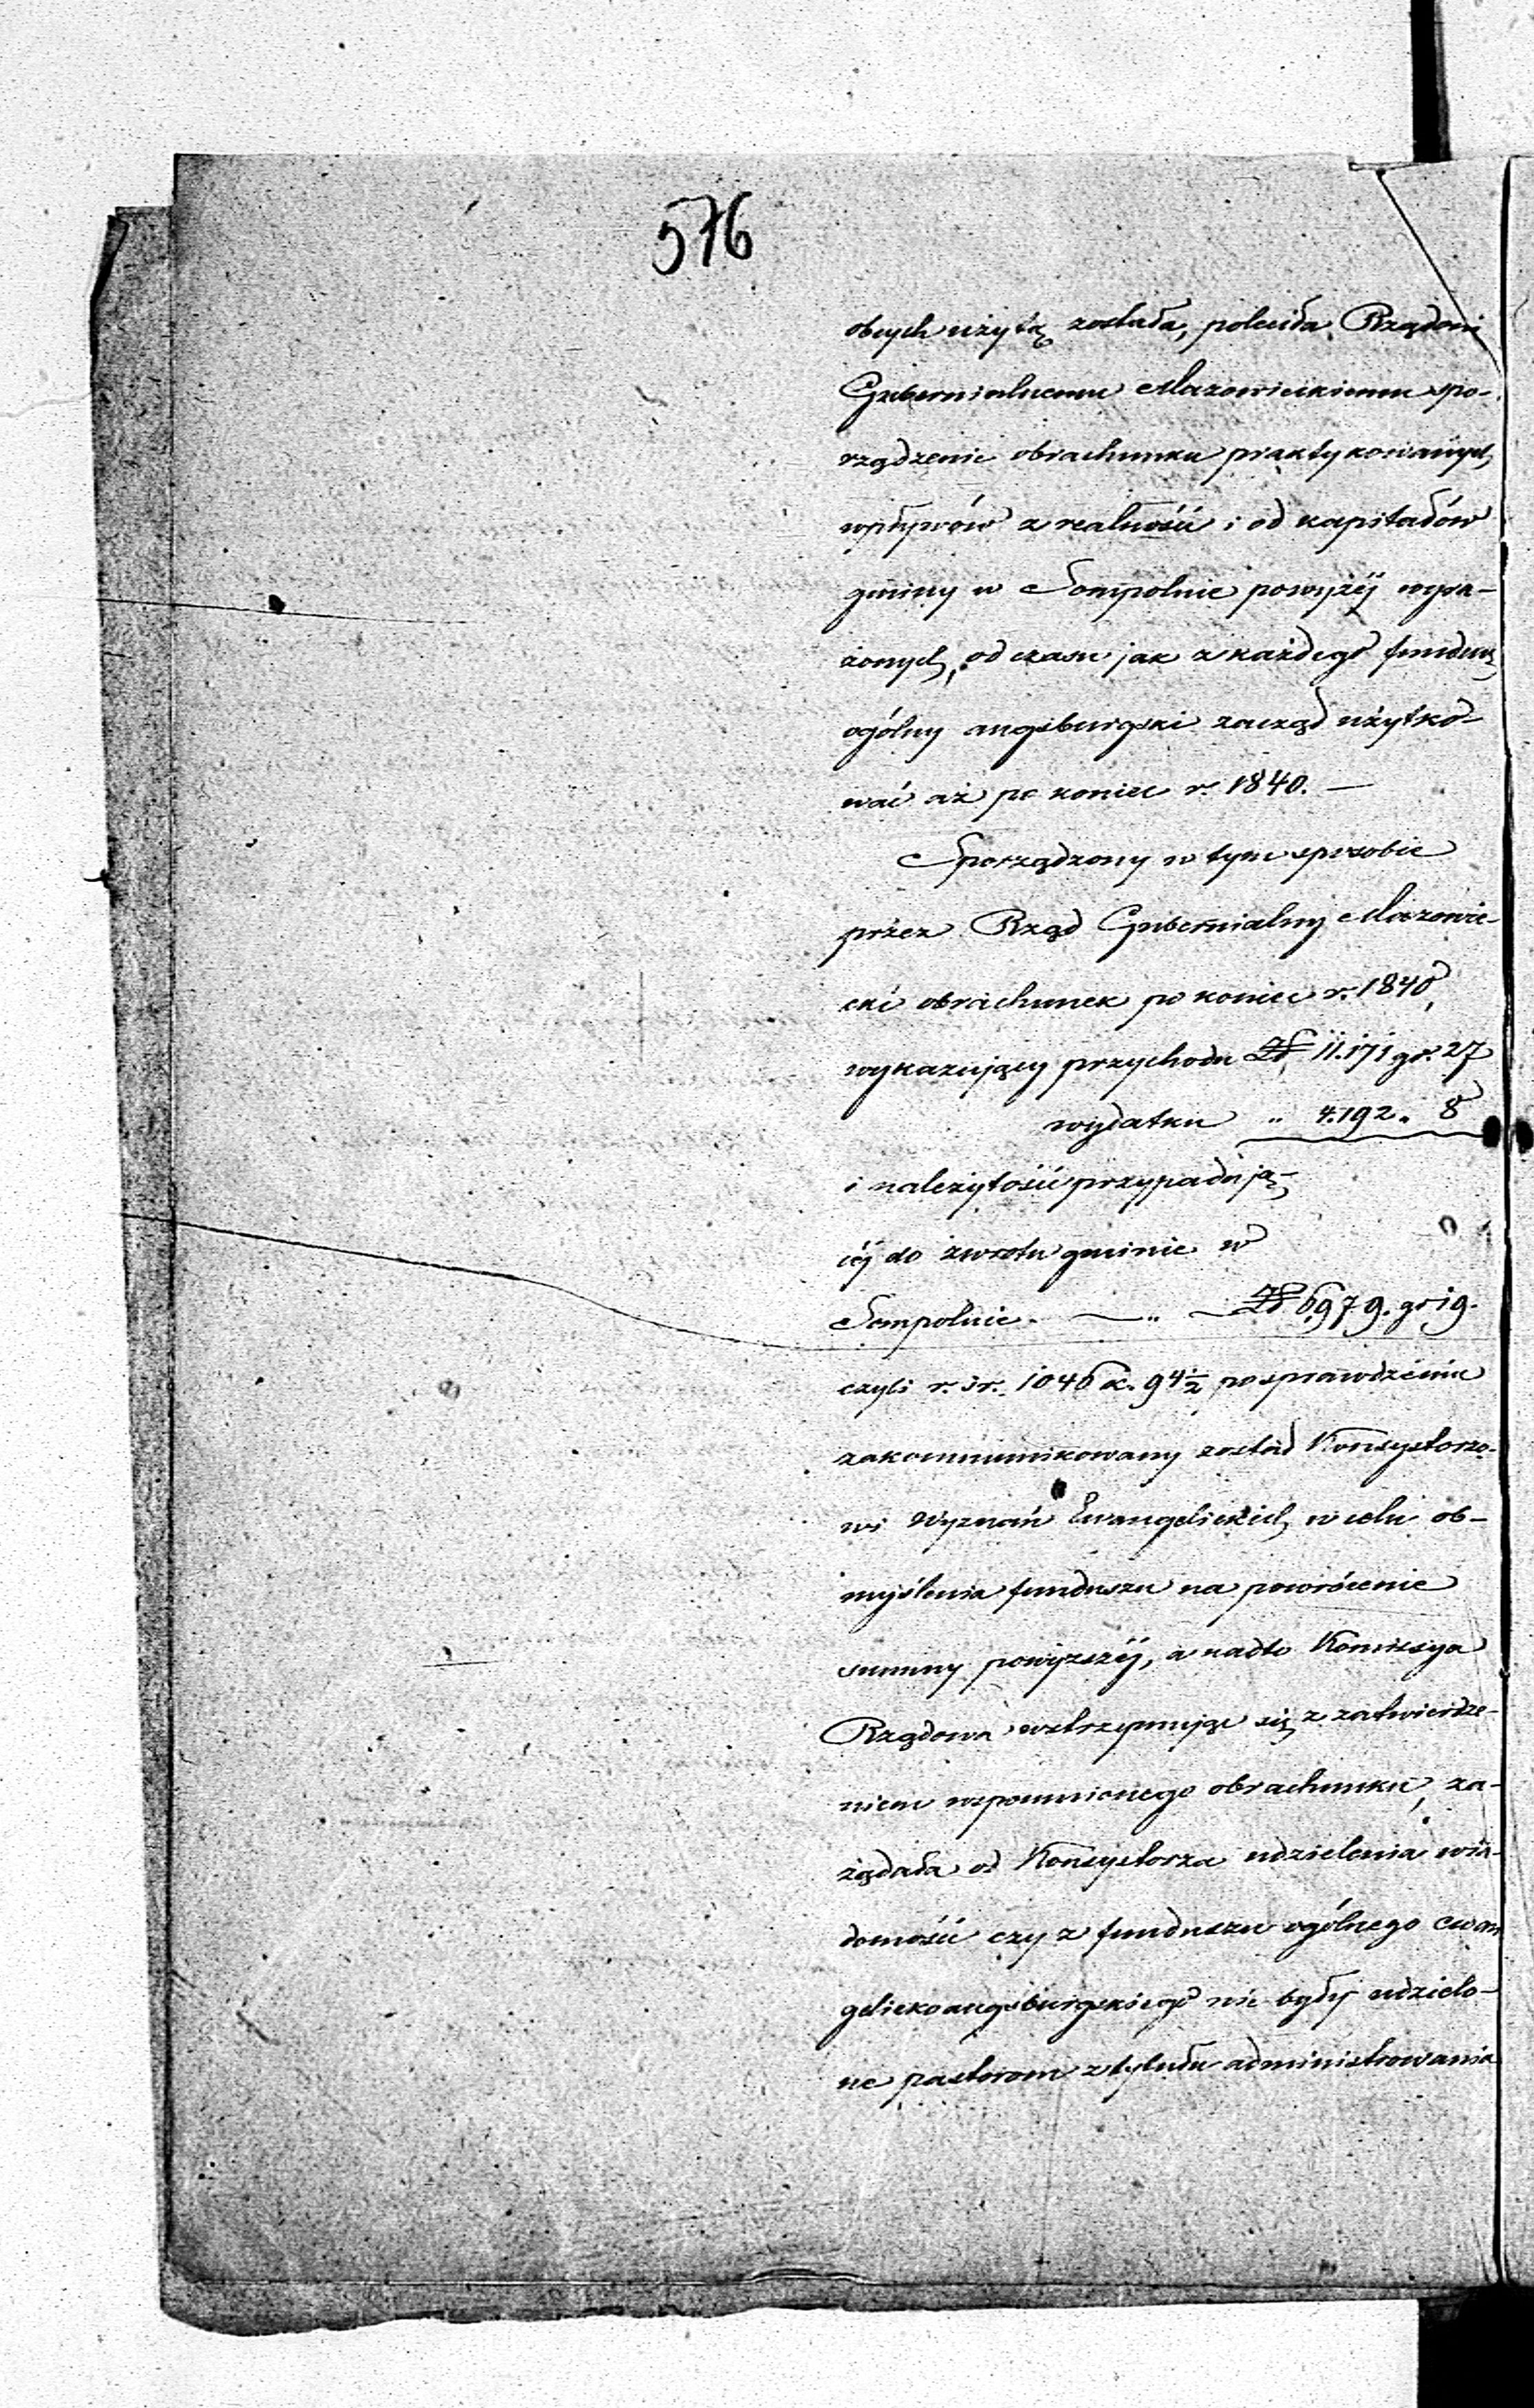 576
obcych użytą została, poleciła Rządowi
Gubernialnemu Mazowieckiemu spo-
rządzenie obrachunku praktykowanych
wpływów z realności i od kapitałów
gminy w Sompolnie powyżej wyra-
żonych, od czasu jak z każdego fundusz
ogólny augsburgski zaczął użytko-
wać aż po koniec r. 1840. —
Sporządzony w tym sposobie
przez Rząd Gubernialny Mazowie-
cki obrachunek po koniec r. 1840,
wykazujący przychodu Zł 11.171 gr. 27
wydatku „ 4.192 „ 8
i należytość przypadają-
cej do zwrotu gminie w
Sompolnie — „ — Zł 6979. gr 19.
czyli r. sr. 1046 k. 94½ po sprawdzeniu
zakommunikowany został Konsystorzo-
wi Wyznań Ewangelickich w celu ob-
myślenia funduszu na powrócenie
summy powyższej, a nadto Kommissya
Rządowa wstrzymując się z zatwierdze-
niem wspomnionego obrachunku, za-
żądała od Konsystorza udzielenia wia-
domości czy z funduszu ogólnego ewan
gelickoaugsburgskiego nie były udzielo-
ne pastorom z tytułu administrowania